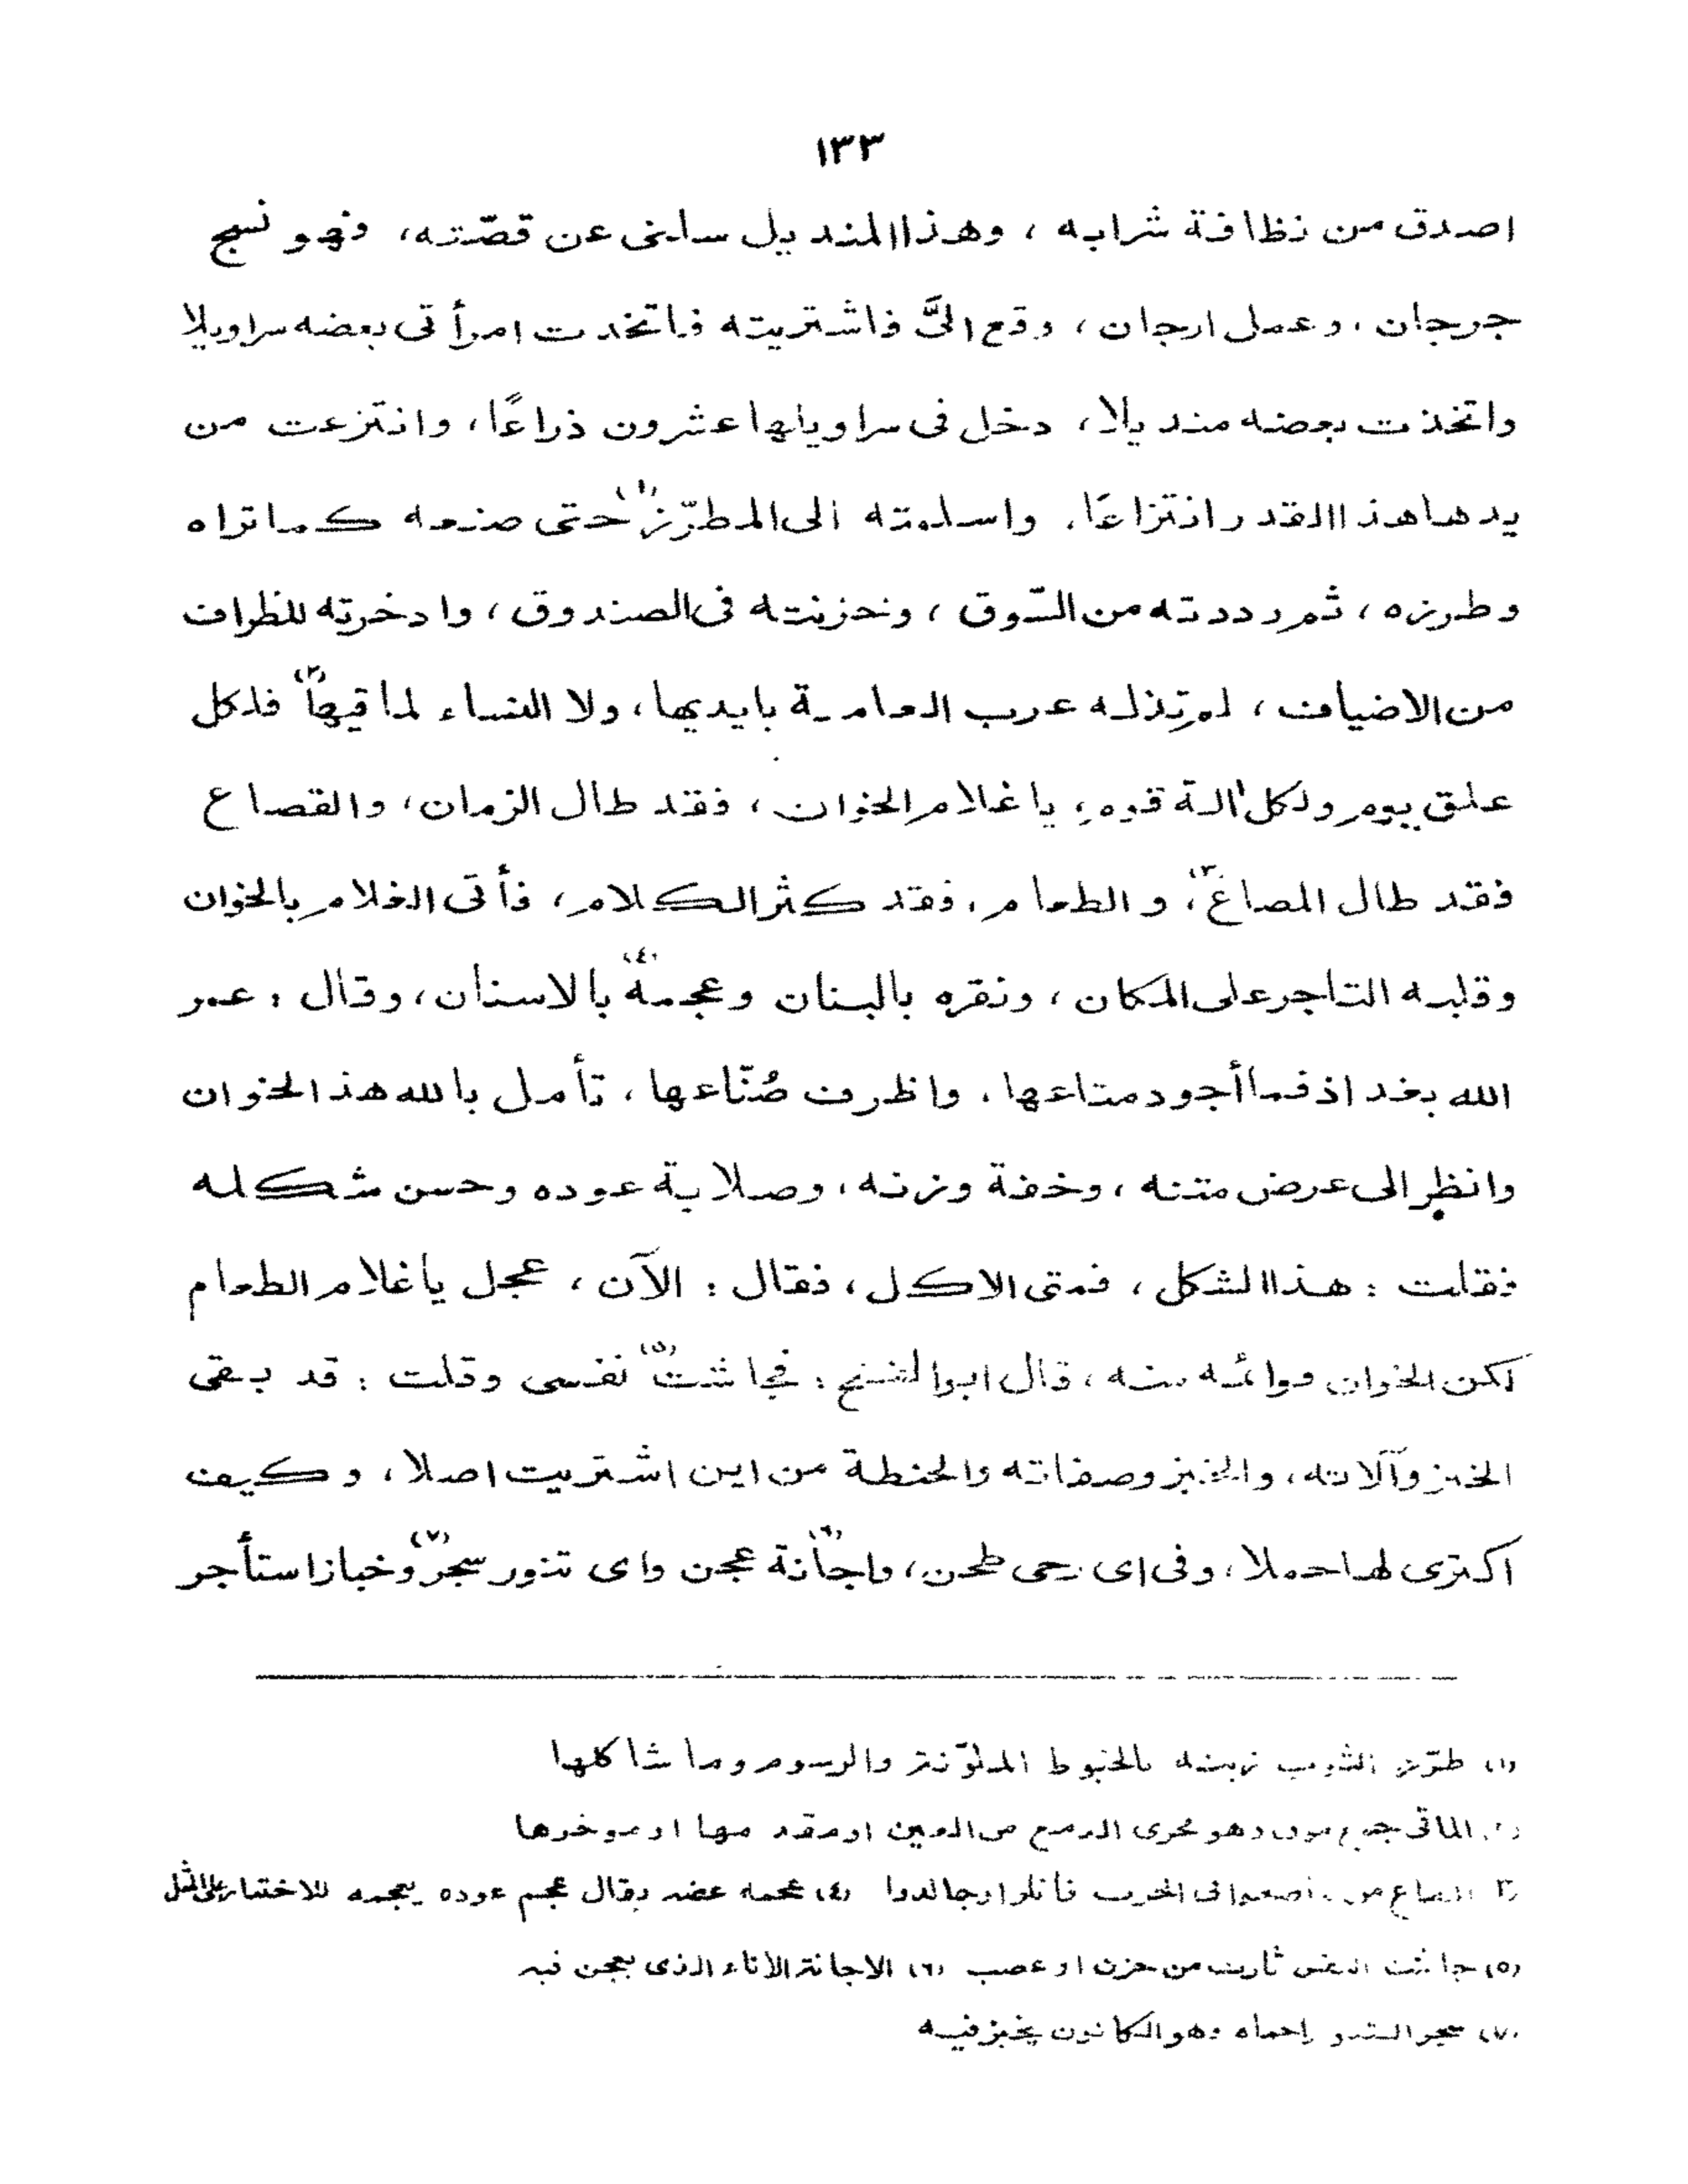 ١٣٣
اصدق من نظافة شرابه ، وهذا المنديل سلنى عن قصّته، فهو نسج
جرجان ، وعمل ارجان ، وقع الىَّ فاشتريته فاتخذت امرأتى بعضه سراويلا
واتخذت بعضه منديلا، دخل فى سراويلها عشرون ذراعًا، وانتزعت من
يدها هذا القدر انتزاعًا، واسلمته الى المطرّز(١) حتى صنعه كما تراه
وطرزه ، ثم رددته من السّوق ، وخزنته فى الصندوق ، وادخرته للظراف
من الاضياف ، لم تذله عرب العامة بايديها، ولا النساء لماقيها(٢) فلكل
علق يوم ولكل الة قوم، يا غلام الخوان ، فقد طال الزمان، والقصاع
فقد طال المصاع(٣)، والطعام، فقد كثر الكلام، فأتى الغلام بالخوان
وقلبه التاجر على المكان ، ونقره بالبنان وعجمه(٤) بالاسنان، وقال : عمر
الله بغداد فما أجود متاعها ، واظرف صُنّاعها ، تأمل بالله هذا الخوان
وانظر الى عرض متنه ، وخفة وزنه ، وصلابة عوده وحسن شكله
فقلت : هذا الشكل ، فمتى الاكل ، فقال : الآن ، عجل يا غلام الطعام
لكن الخوان قوائمه منه ، قال ابو الفتح : فجاشت(٥) نفسى وقلت : قد بقى
الخبز وآلاته ، والخبز وصفاته والحنطة من اين اشتريت اصلا ، وكيف
اكترى لها حملا ، وفى اى رحى طحن، واجّانة(٦) عجن واى تنور سجر(٧) وخبازا ستأجر
(١) طرّز الثوب زينه بالخيوط الملوّنة والرسوم وما شاكلها
الماقى جمع موق وهو مجرى الدمع من العين او مقدمها او موخرها
(٣) المصاع من ماصعوا فى الحرب قاتلوا وجالدوا (٤) عجمه عضه يقال عجم عوده يعجمه للاختبار على المثل
(٥) جاشت النفس ثارت من حزن او غصب (٦) الاجانة الأناء الذى يعجن فيه
(٧) سجر التنور إحماه وهو الكانون يخبز فيه